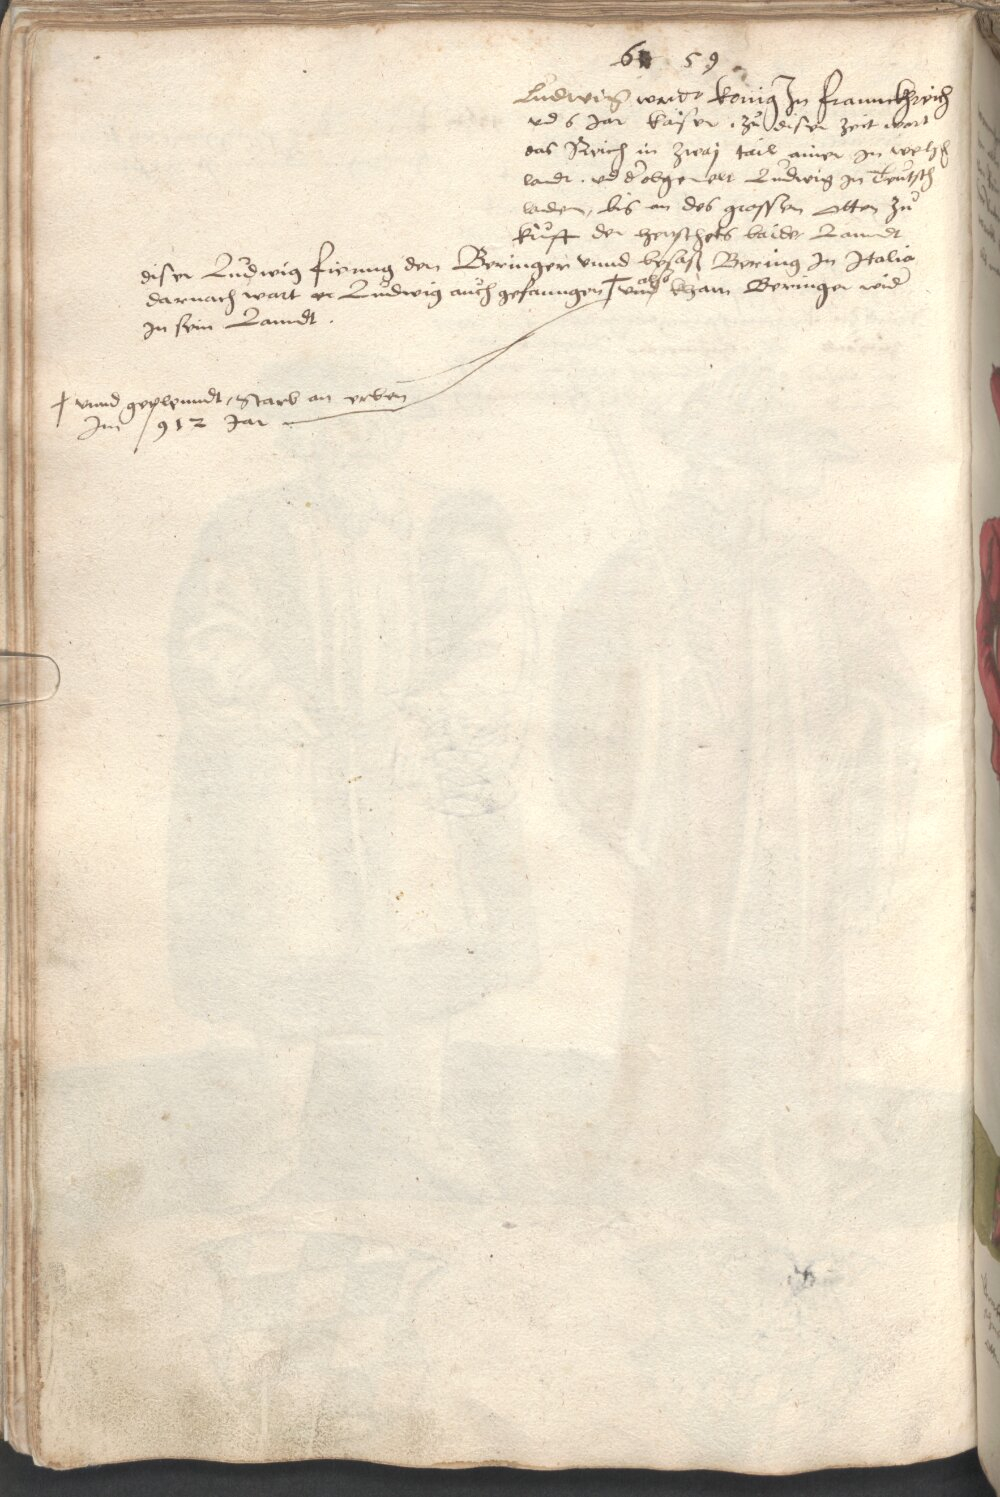 6 59
Ludwig wardt konig In franckhreich
vnd 6 Jar kaiser. zu diser zeit wart
das Reich in zwaj tail ainer in welsch
landt. vnd d obgenert Ludwig in Teutsch
landen, bis an des grossen otten zu
kunft der herschets baider Landt
diser Ludwig fieng den Beringer vnnd besas Bering In Italia
darnach wart er Ludwig auch gefanngen † vnnd also kham Beringer wid
In sein Lanndt.
† vnnd geplenndt, starb an erben
Im 912 Jar